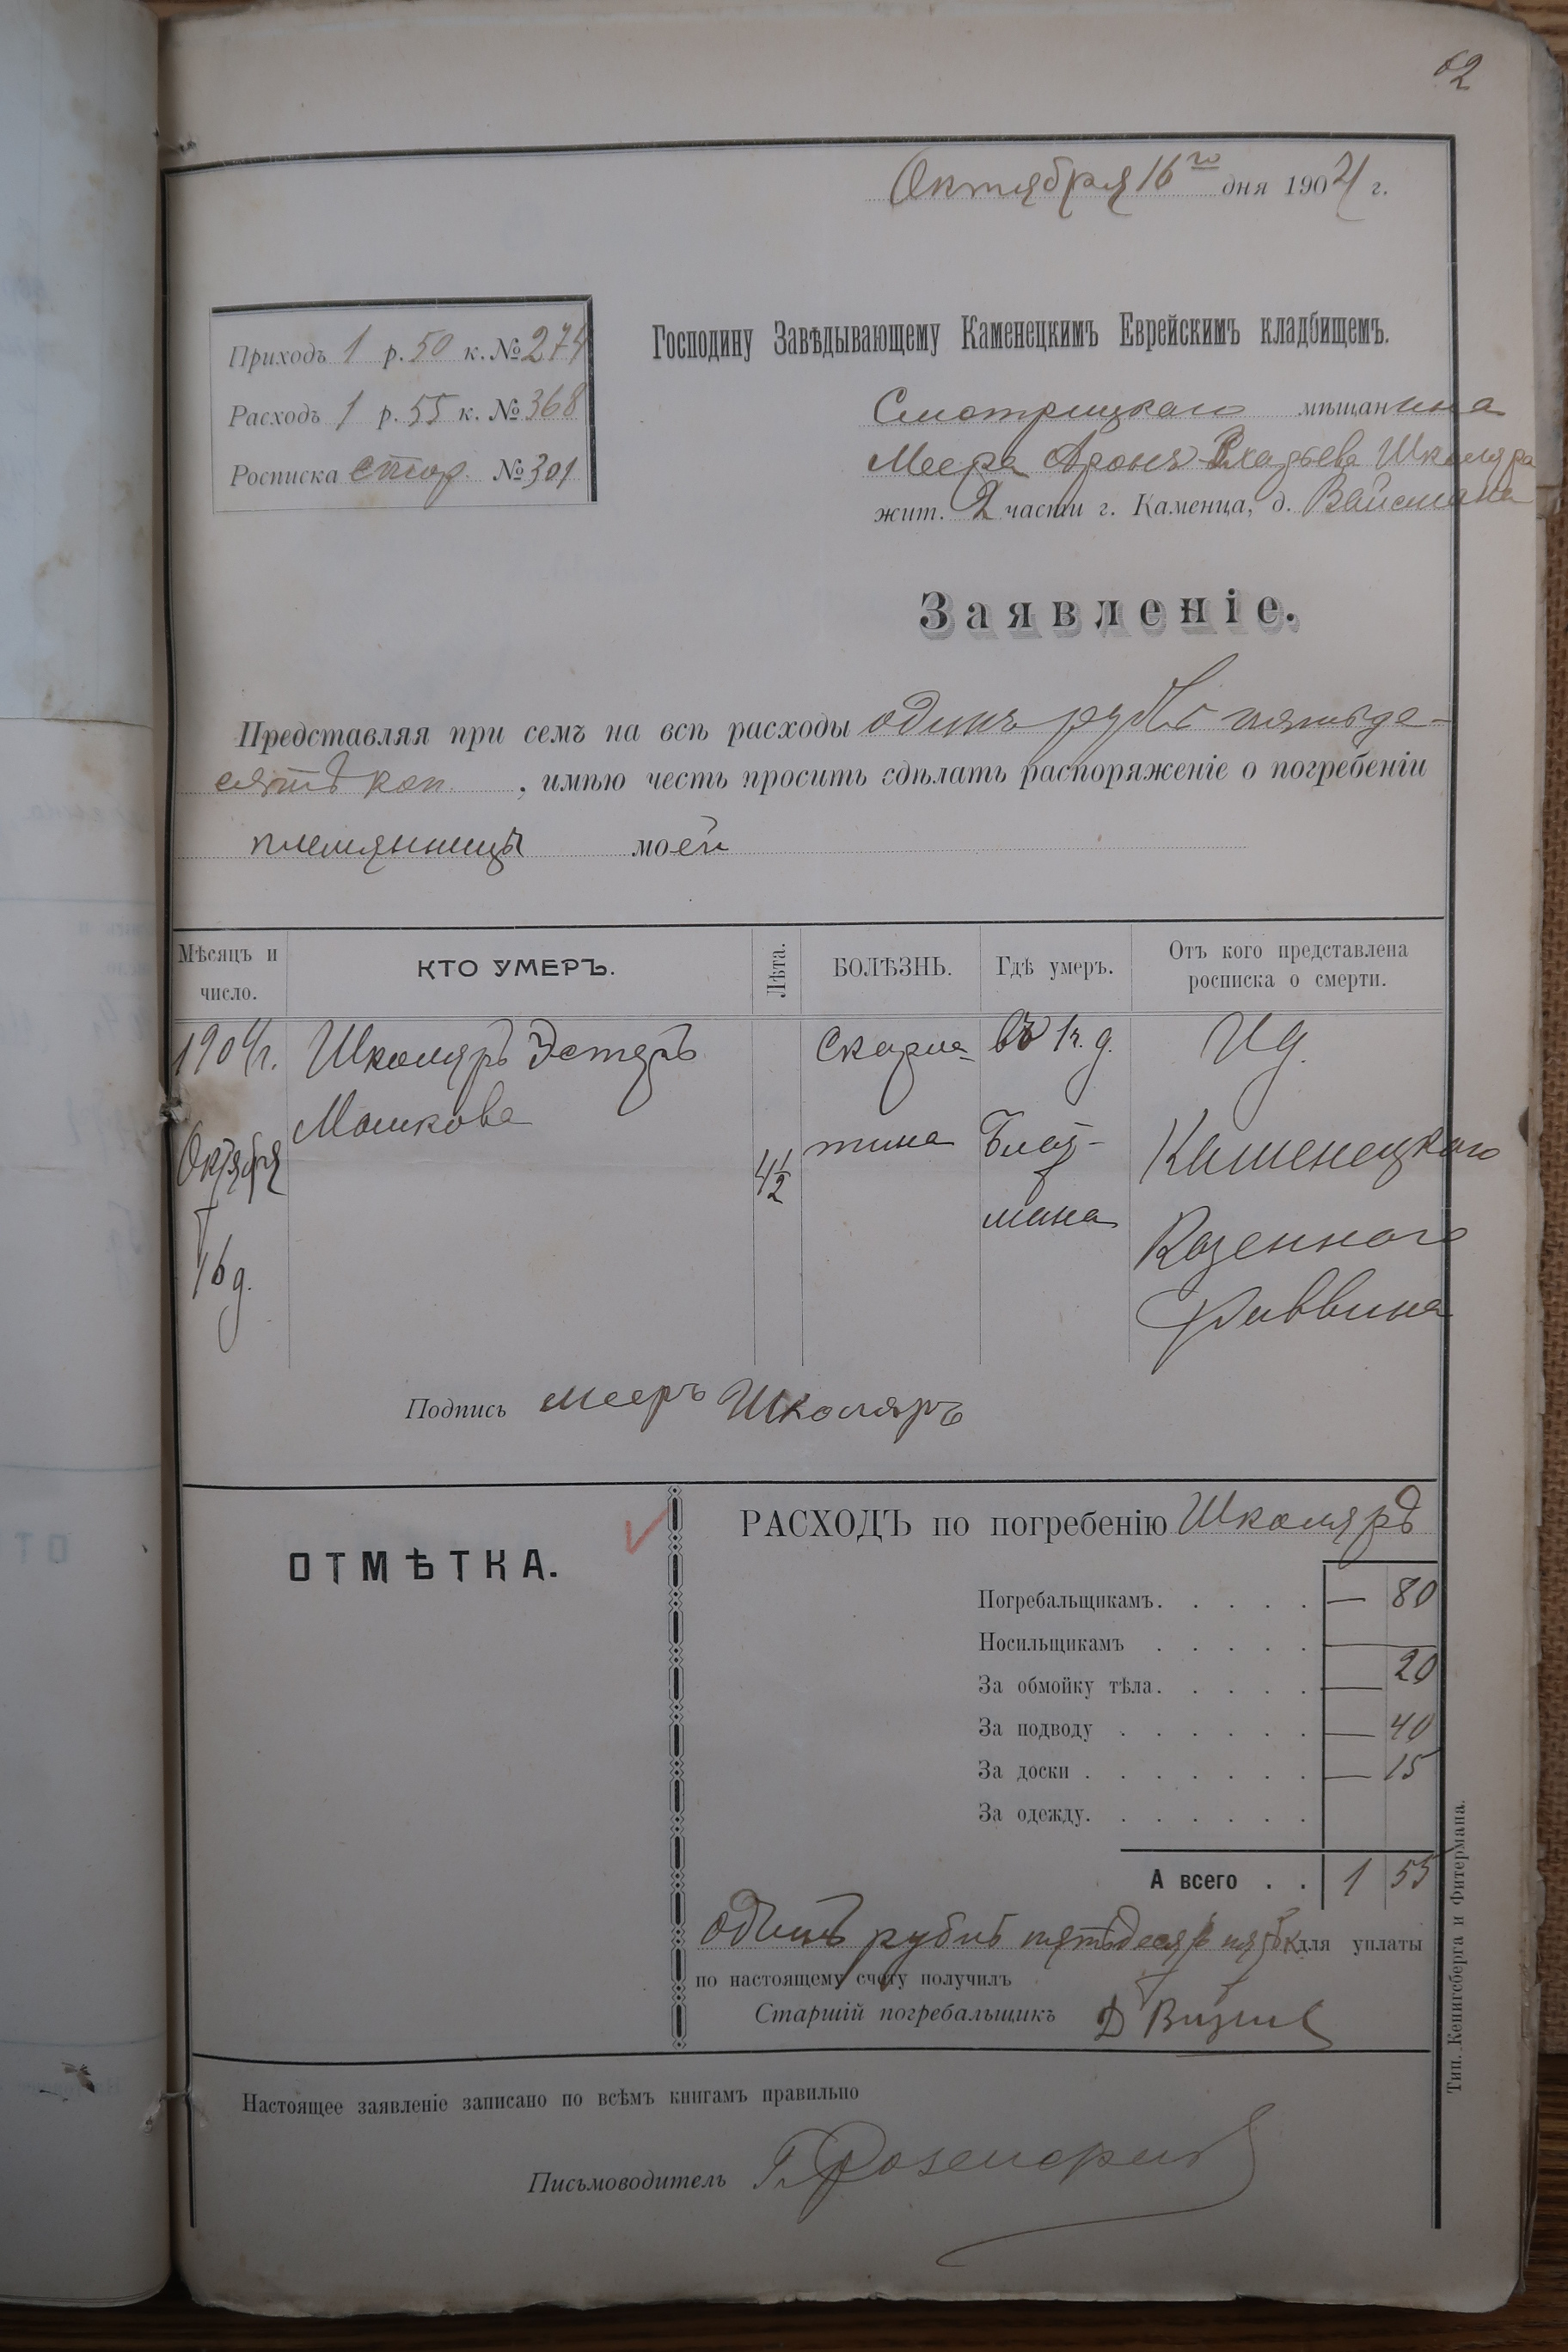 62
Октября 16го дня 1904 г.
Приходъ 1 р. 50 к. № 274
Расходъ 1 р. 55 к. № 368
Росписка стор. № 301
Господину Завѣдывающему Каменецкимъ Еврейскимъ кладбищемъ.
Смотрицкаго мѣщанина
Меера Арона Школяра
жит. 2 части г. Каменца, д. Вайсмана
Заявленіе.
Представляя при семъ на всѣ расходы одинъ рубль пятьде-
сятъ коп. , имѣю честь просить сдѣлать распоряженіе о погребеніи
племянницы моей
Мѣсяцъ и число.
КТО УМЕРЪ.
Лѣта.
БОЛѢЗНЬ.
Гдѣ умеръ.
Отъ кого представлена
росписка о смерти.
1904 г.
Октября
16 д.
Школяръ Эстеръ
Мошкова
4 1/2
Скарла-
тина
въ 1 ч. д.
мана
Каменецкаго
Казеннаго
Раввина
Подпись Мееръ Школяръ
ОТМѢТКА.
РАСХОДЪ по погребенію Школяръ
Погребальщикамъ. . . . . — 80
Носильщикамъ . . . . . —
За обмойку тѣла. . . . . — 20
За подводу . . . . . . — 40
За доски . . . . . . . — 15
За одежду. . . . . . .
А всего . . 1 55
одинъ рубль пятьдесятъ пять к для уплаты
по настоящему счету получилъ
Старшій погребальщикъ Д
Настоящее заявленіе записано по всѣмъ книгамъ правильно
Письмоводитель
Тип. Кенигсберга и Фитермана.